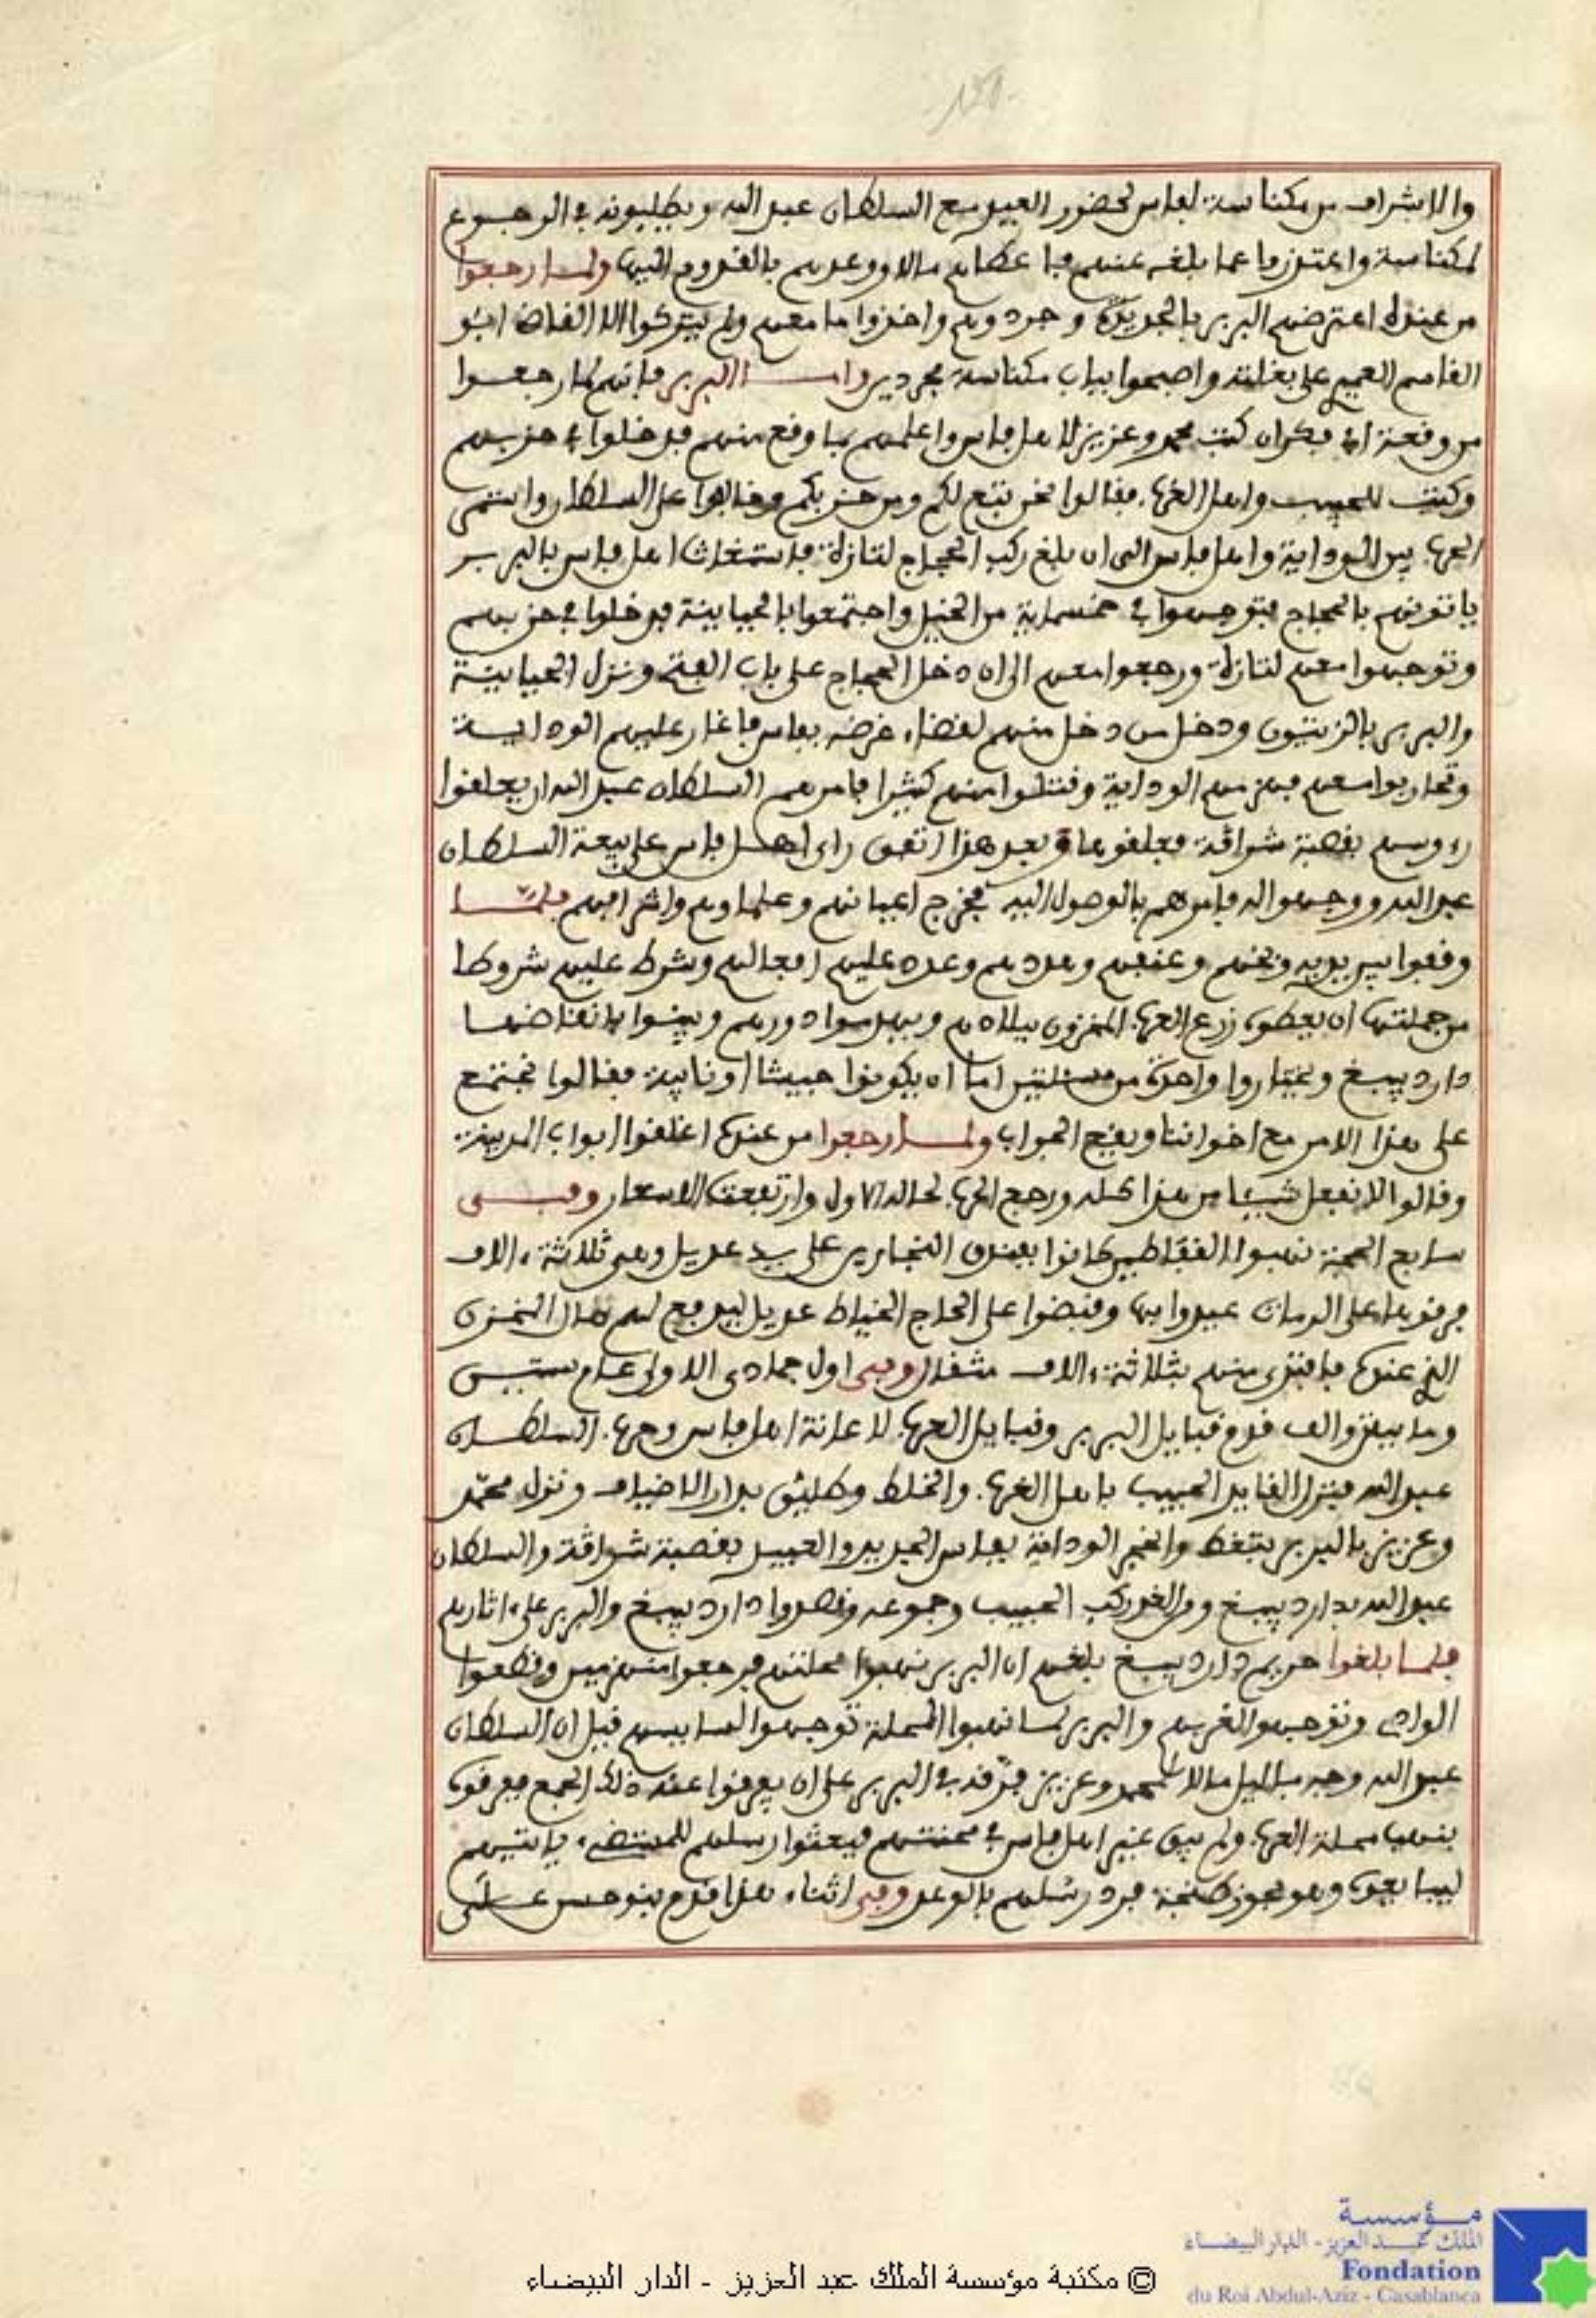 والاشراف من مكناسة لفاس لحضور العيد مع السلطان عبد الله ويطلبونه في الرجوع
لمكناسة واعتذروا عما بلغه عنهم فاعطاهم مالا ووعدهم بالقدوم اليها ولما رجعوا
من عنده اعترضهم البربر بالجديدة وجردوهم واخذوا ما معهم ولم يتركوا الا القاضي ابو
القاسم العميري على بغلته واصبحوا بباب مكناسة مجردين واما البربر فانهم لما رجعوا
من وقعة ابي فكران كتب محمد وعزيز لاهل فاس واعلمهم بما وقع منهم فدخلوا في حزبهم
وكتب للحبيب واهل الغرب فقالوا نحن نتبع لكم ومن حزبكم وخالفوا على السلطان وانتمى
الحرب بين الوداية واهل فاس الى ان بلغ ركب الحجاج لتازة فاستغاث اهل فاس بالبربر
ياتونهم بالحجاج فتوجهوا في خمسماية من الخيل واجتمعوا بالحياينة فدخلوا في حزبهم
وتوجهوا معهم لتازة ورجعوا معهم الى ان دخل الحجاج على باب الفتح ونزل الحياينة
والبربر بالزيتون ودخل من دخل منهم لقضاء غرضه بفاس فاغار عليهم الوداية
وتحاربوا معهم فهزمهم الوداية وقتلوا منهم كثيرا فامرهم السلطان عبد الله ان يعلقوا
رءوسهم بقصبة شراقة فعلقوها وبعد هذا اتفق راي اهل فاس على بيعة السلطان
عبد الله ووجهوا له فامرهم بالوصول اليه فخرج اعيانهم وعلماوهم واشرافهم فلما
وقفوا بين يديه وبخهم وعنفهم وهددهم وعدد عليهم افعالهم وشرط عليهم شروطا
من جملتها ان يعطوه زرع العرب المخزون ببلادهم ويهدموا دورهم ويبنوا بانقاضها
دار دبيبغ ويختاروا واحدة من مسئلتين اما ان يكونوا جيشا او نايبة فقالوا نجتمع
على هذا الامر مع اخواننا ويقع الجواب ولما رجعوا من عنده اغلقوا ابواب المدينة
وقالوا لا نفعل شييا من هذا كله ورجع الحرب لحاله الاول وارتفعت الاسعار وفي
سابع الحجة نهبوا القفاطين كانوا بفندق النجارين على يد عديل وهي ثلاثة ءالاف
فرقوها على الرماة عيدوا بها وقبضوا على الحاج الخياط عديل ليدفع لهم مال المخزن
الذي عنده فافتدى منهم بثلاثة ءالاف مثقال وفي اول جمادى الاولى عام ستين
وماية والف قدم قبايل البربر وقبايل العرب لاعانة اهل فاس وحرب السلطان
عبد الله فنزل القايد الحبيب باهل الغرب والخلط وطليق بدار الاضياف ونزل محمد
وعزيز بالبربر بتغط وانحجر الوداية بفاس الجديد والعبيد بقصبة شراقة والسلطان
عبد الله بدار دبيبغ ومن الغد ركب الحبيب وجموعه وقصدوا دار دبيبغ والبربر على ءاثارهم
فلما بلغوا حريم دار دبيبغ بلغهم ان البربر نهبوا محلتهم فرجعوا منهزمين وقطعوا
الوادي وتوجهوا لغربهم والبربر لما نهبوا المحلة توجهوا لسايسهم قيل ان السلطان
عبد الله وجه بالليل مالا لمحمد وعزيز فرقه في البربر على ان يفرقوا عنه ذلك الجمع ففرقوه
بنهب محلة العرب ولم يبق غير اهل فاس في محنتهم فبعثوا رسلهم للمستضيء ياتيهم
ليبايعوه وهو بحوز طنجة فرد رسلهم بالوعد وفي اثناء هذا قدم بنو حسن على
© مكتبة مؤسسة الملك عبد العزيز - الدار البيضاء
مؤسسة
الملك عبد العزيز - الدار البيضاء
Fondation
du Roi Abdul-Aziz - Casablanca